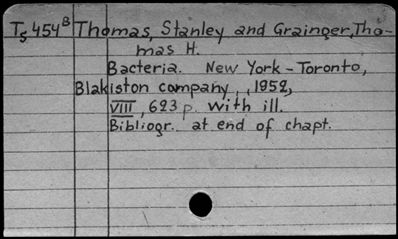 Ts 454B Thomas, Stanley and Grainger, Tho-
mas H.
Bacteria. New York - Toronto,
Blakiston company, , 1952,
VIII, 623 p. with ill.
Bibliogr. at end of chapt.